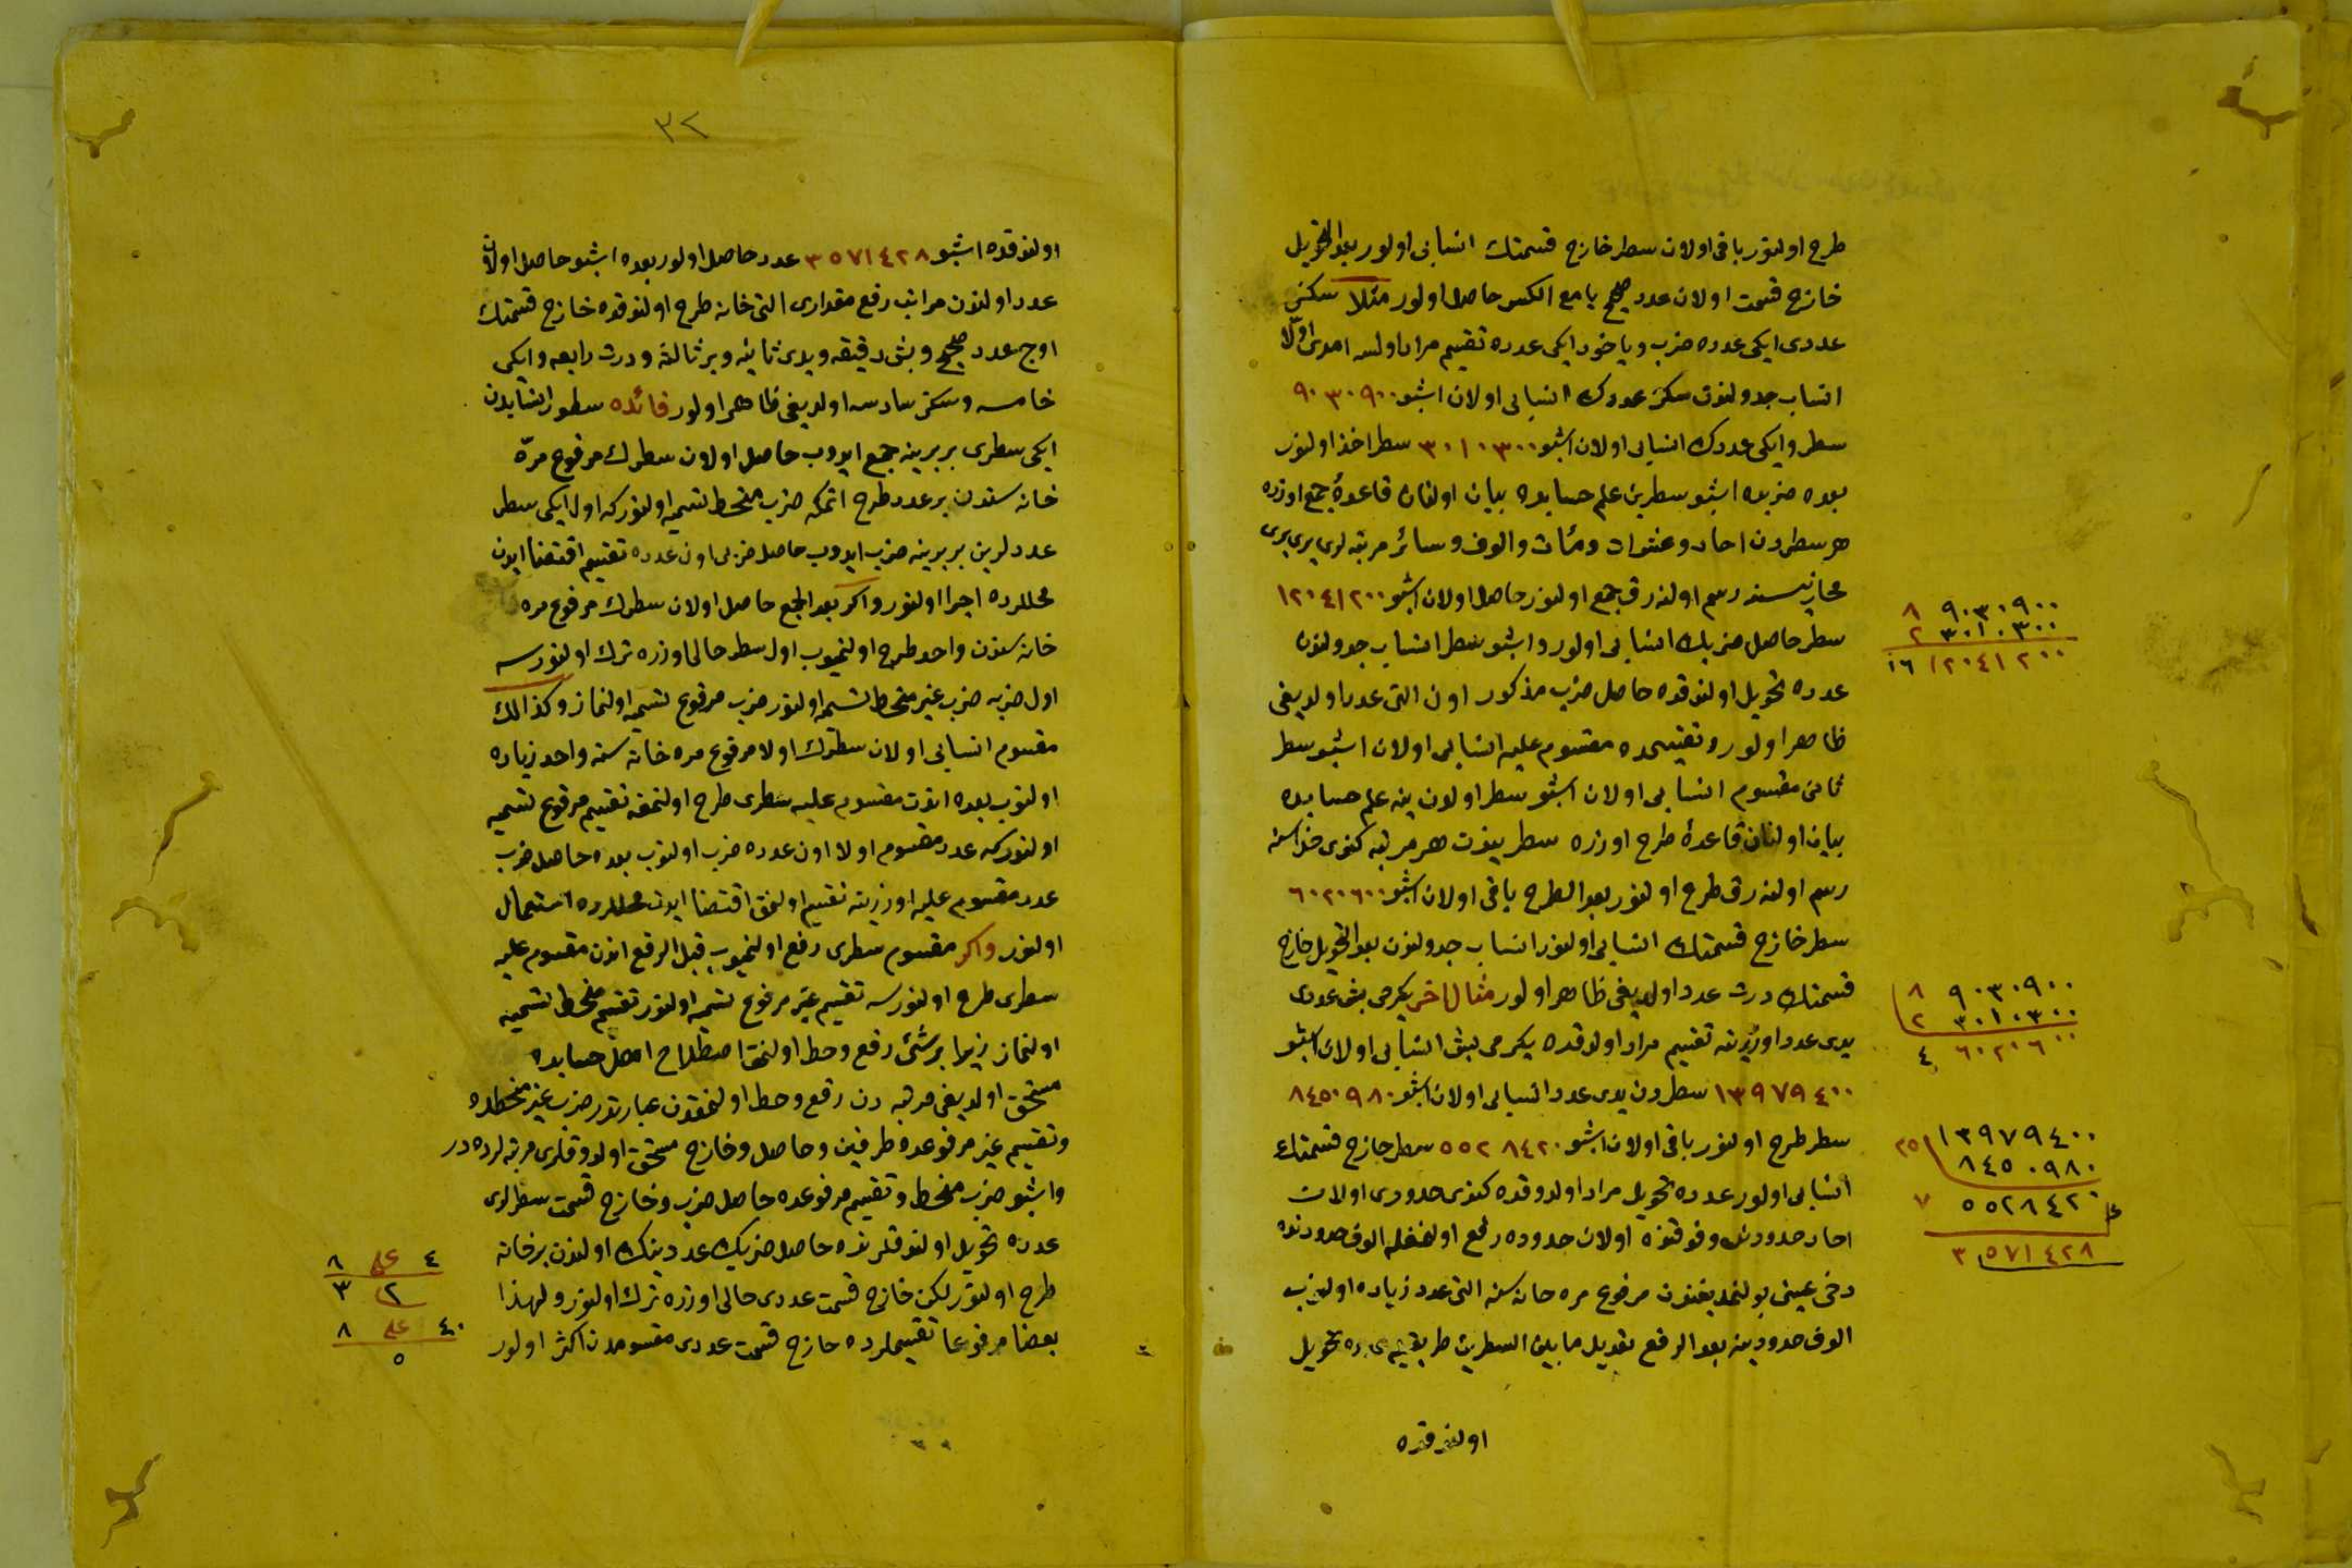 طرح اولنور باقی اولان سطر خارج قسمتك انسابی اولور بعد التحویل
خارج قسمت اولان عدد صحیح یا مع الكسر حاصل اولور مثلا سكز
عددی ایكی عدده ضرب ویاخود ایكی عدده تقسیم مراد اولسه امدی اولا
انساب جدولندن سكز عددك انسابی اولان اشبو ۹۰۳۰۹۰۰
سطر وایكی عددك انسابی اولان اشبو ۳۰۱۰۳۰۰ سطر اخذ اولنور
بعده ضربده اشبو سطرین علم حسابده بیان اولنان قاعدهٔ جمع اوزره
هر سطردن احاد وعشرات ومئات والوف وسائر مرتبه لری بری بری
محاذیسنه رسم اولنه رق جمع اولنور حاصل اولان اشبو ۱۲۰٤۱۲۰۰
سطر حاصل ضربك انسابی اولور واشبو سطر انساب جدولندن
عدده تحویل اولندقده حاصل ضرب مذكور اون التی عدد اولدیغی
ظاهر اولور وتقسیمده مقسوم علیه انسابی اولان اشبو سطر
ثانی مقسوم انسابی اولان اشبو سطر اولدن ینه علم حسابده
بیان اولنان قاعدهٔ طرح اوزره سطرینك هر مرتبه كندی حذاسنه
رسم اولنه رق طرح اولنور بعد الطرح باقی اولان اشبو ٦۰۲۰٦۰۰
سطر خارج قسمتك انسابی اولنور انساب جدولندن بعد التحویل خارج
قسمتك درت عدد اولدیغی ظاهر اولور مثال اخر یكرمی بش عددی
یدی عدد اوزرینه تقسیم مراد اولدقده یكرمی بش انسابی اولان اشبو
۱۳۹۷۹٤۰۰ سطردن یدی عدد انسابی اولان اشبو ۸٤٥۰۹۸۰
سطر طرح اولنور باقی اولان اشبو ٥٥۲۸٤۲۰ سطر خارج قسمتك
انسابی اولور عدده تحویل مراد اولدوقده كندی حدودی اولان
احاد حدودینك وفوقنده اولان حدوده رفع اولنمغله الوف حدودنده
دخی عینی بولنمدیغندن مرفوع مره خانه سنه التی عدد زیاده اولنوب
الوف حدودینه بعد الرفع تعدیل مابین السطرین طریقیله عدده تحویل
اولندقده
۹۰۳۰۹۰۰ ۸
۳۰۱۰۳۰۰ ۲
۱۲۰٤۱۲۰۰ ۱٦
۹۰۳۰۹۰۰ ۸
۳۰۱۰۳۰۰ ۲
٦۰۲۰٦۰۰ ٤
۱۳۹۷۹٤۰۰ ۲٥
۸٤٥۰۹۸۰
٥٥۲۸٤۲۰ ۷
۳٥۷۱٤۲۸
۳۲
اولندقده اشبو ۳٥۷۱٤۲۸ عدد حاصل اولور بعده اشبو حاصل اولان
عدد اولندن مراتب رفع مقداری التی خانه طرح اولندقده خارج قسمتك
اوج عدد صحیح وبش دقیقه ویدی ثانیه وبر ثالثه ودرت رابعه وایكی
خامسه وسكز سادسه اولدیغی ظاهر اولور فائده سطور انسابدن
ایكی سطری بربرینه جمع ایدوب حاصل اولان سطرك مرفوع مره
خانه سندن بر عدد طرح اتمكه ضرب منحط تسمیه اولنور كه اول ایكی سطر
عددلرین بربرینه ضرب ایدوب حاصل ضربی اون عدده تقسیم اقتضا ایدن
محللرده اجرا اولنور واكر بعد الجمع حاصل اولان سطرك مرفوع مره
خانه سندن واحد طرح اولنمیوب اول سطر حالی اوزره ترك اولنورسه
اول ضربه ضرب غیر منحط تسمیه اولنور ضرب مرفوع تسمیه اولنماز وكذالك
مقسوم انسابی اولان سطرك اولا مرفوع مره خانه سنه واحد زیاده
اولنوب بعده اندن مقسوم علیه سطری طرح اولنمغه تقسیم مرفوع تسمیه
اولنور كه عدد مقسوم اولا اون عدده ضرب اولنوب بعده حاصل ضرب
عدد مقسوم علیه اوزرینه تقسیم اولنمق اقتضا ایدن محللرده استعمال
اولنور واكر مقسوم سطری رفع اولنمیوب قبل الرفع اندن مقسوم علیه
سطری طرح اولنورسه تقسیم غیر مرفوع تسمیه اولنور تقسیم منحط تسمیه
اولنماز زیرا بر شئی رفع وحط اولنمق اصطلاح اهل حسابده
مستحق اولدیغی مرتبه دن رفع وحط اولنمقدن عبارتدر ضرب غیر منحطده
وتقسیم غیر مرفوعده طرفین وحاصل وخارج مستحق اولدوقلری مرتبه لرده در
واشبو ضرب منحط وتقسیم مرفوعده حاصل ضرب وخارج قسمت سطرلری
عدده تحویل اولندقلرنده حاصل ضربك عددینك اولندن بر خانه
طرح اولنور لكن خارج قسمت عددی حالی اوزره ترك اولنور ولهذا
بعضا مرفوعا تقسیملرده خارج قسمت عددی مقسومدن اكثر اولور
٤ علی ۸
۲ ۳
٤۰ علی ۸
٥